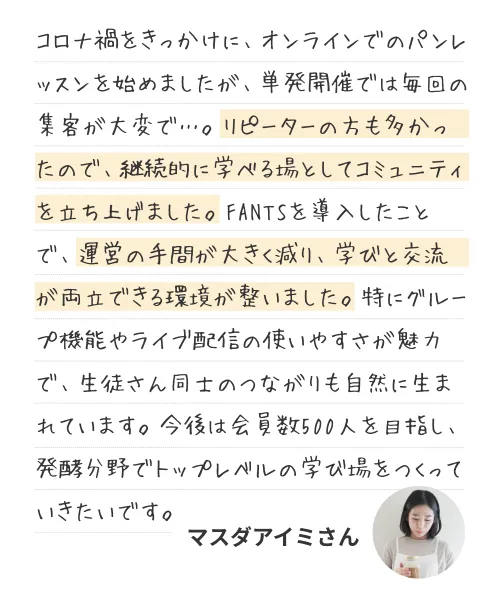 コロナ禍をきっかけに、オンラインでのパンレ
ッスンを始めましたが、単発開催では毎回の
集客が大変で…。リピーターの方も多かっ
たので、継続的に学べる場としてコミュニティ
を立ち上げました。FANTSを導入したこと
で、運営の手間が大きく減り、学びと交流
が両立できる環境が整いました。特にグルー
プ機能やライブ配信の使いやすさが魅力
で、生徒さん同士のつながりも自然に生ま
れています。今後は会員数500人を目指し、
発酵分野でトップレベルの学び場をつくって
いきたいです。
マスダアイミさん